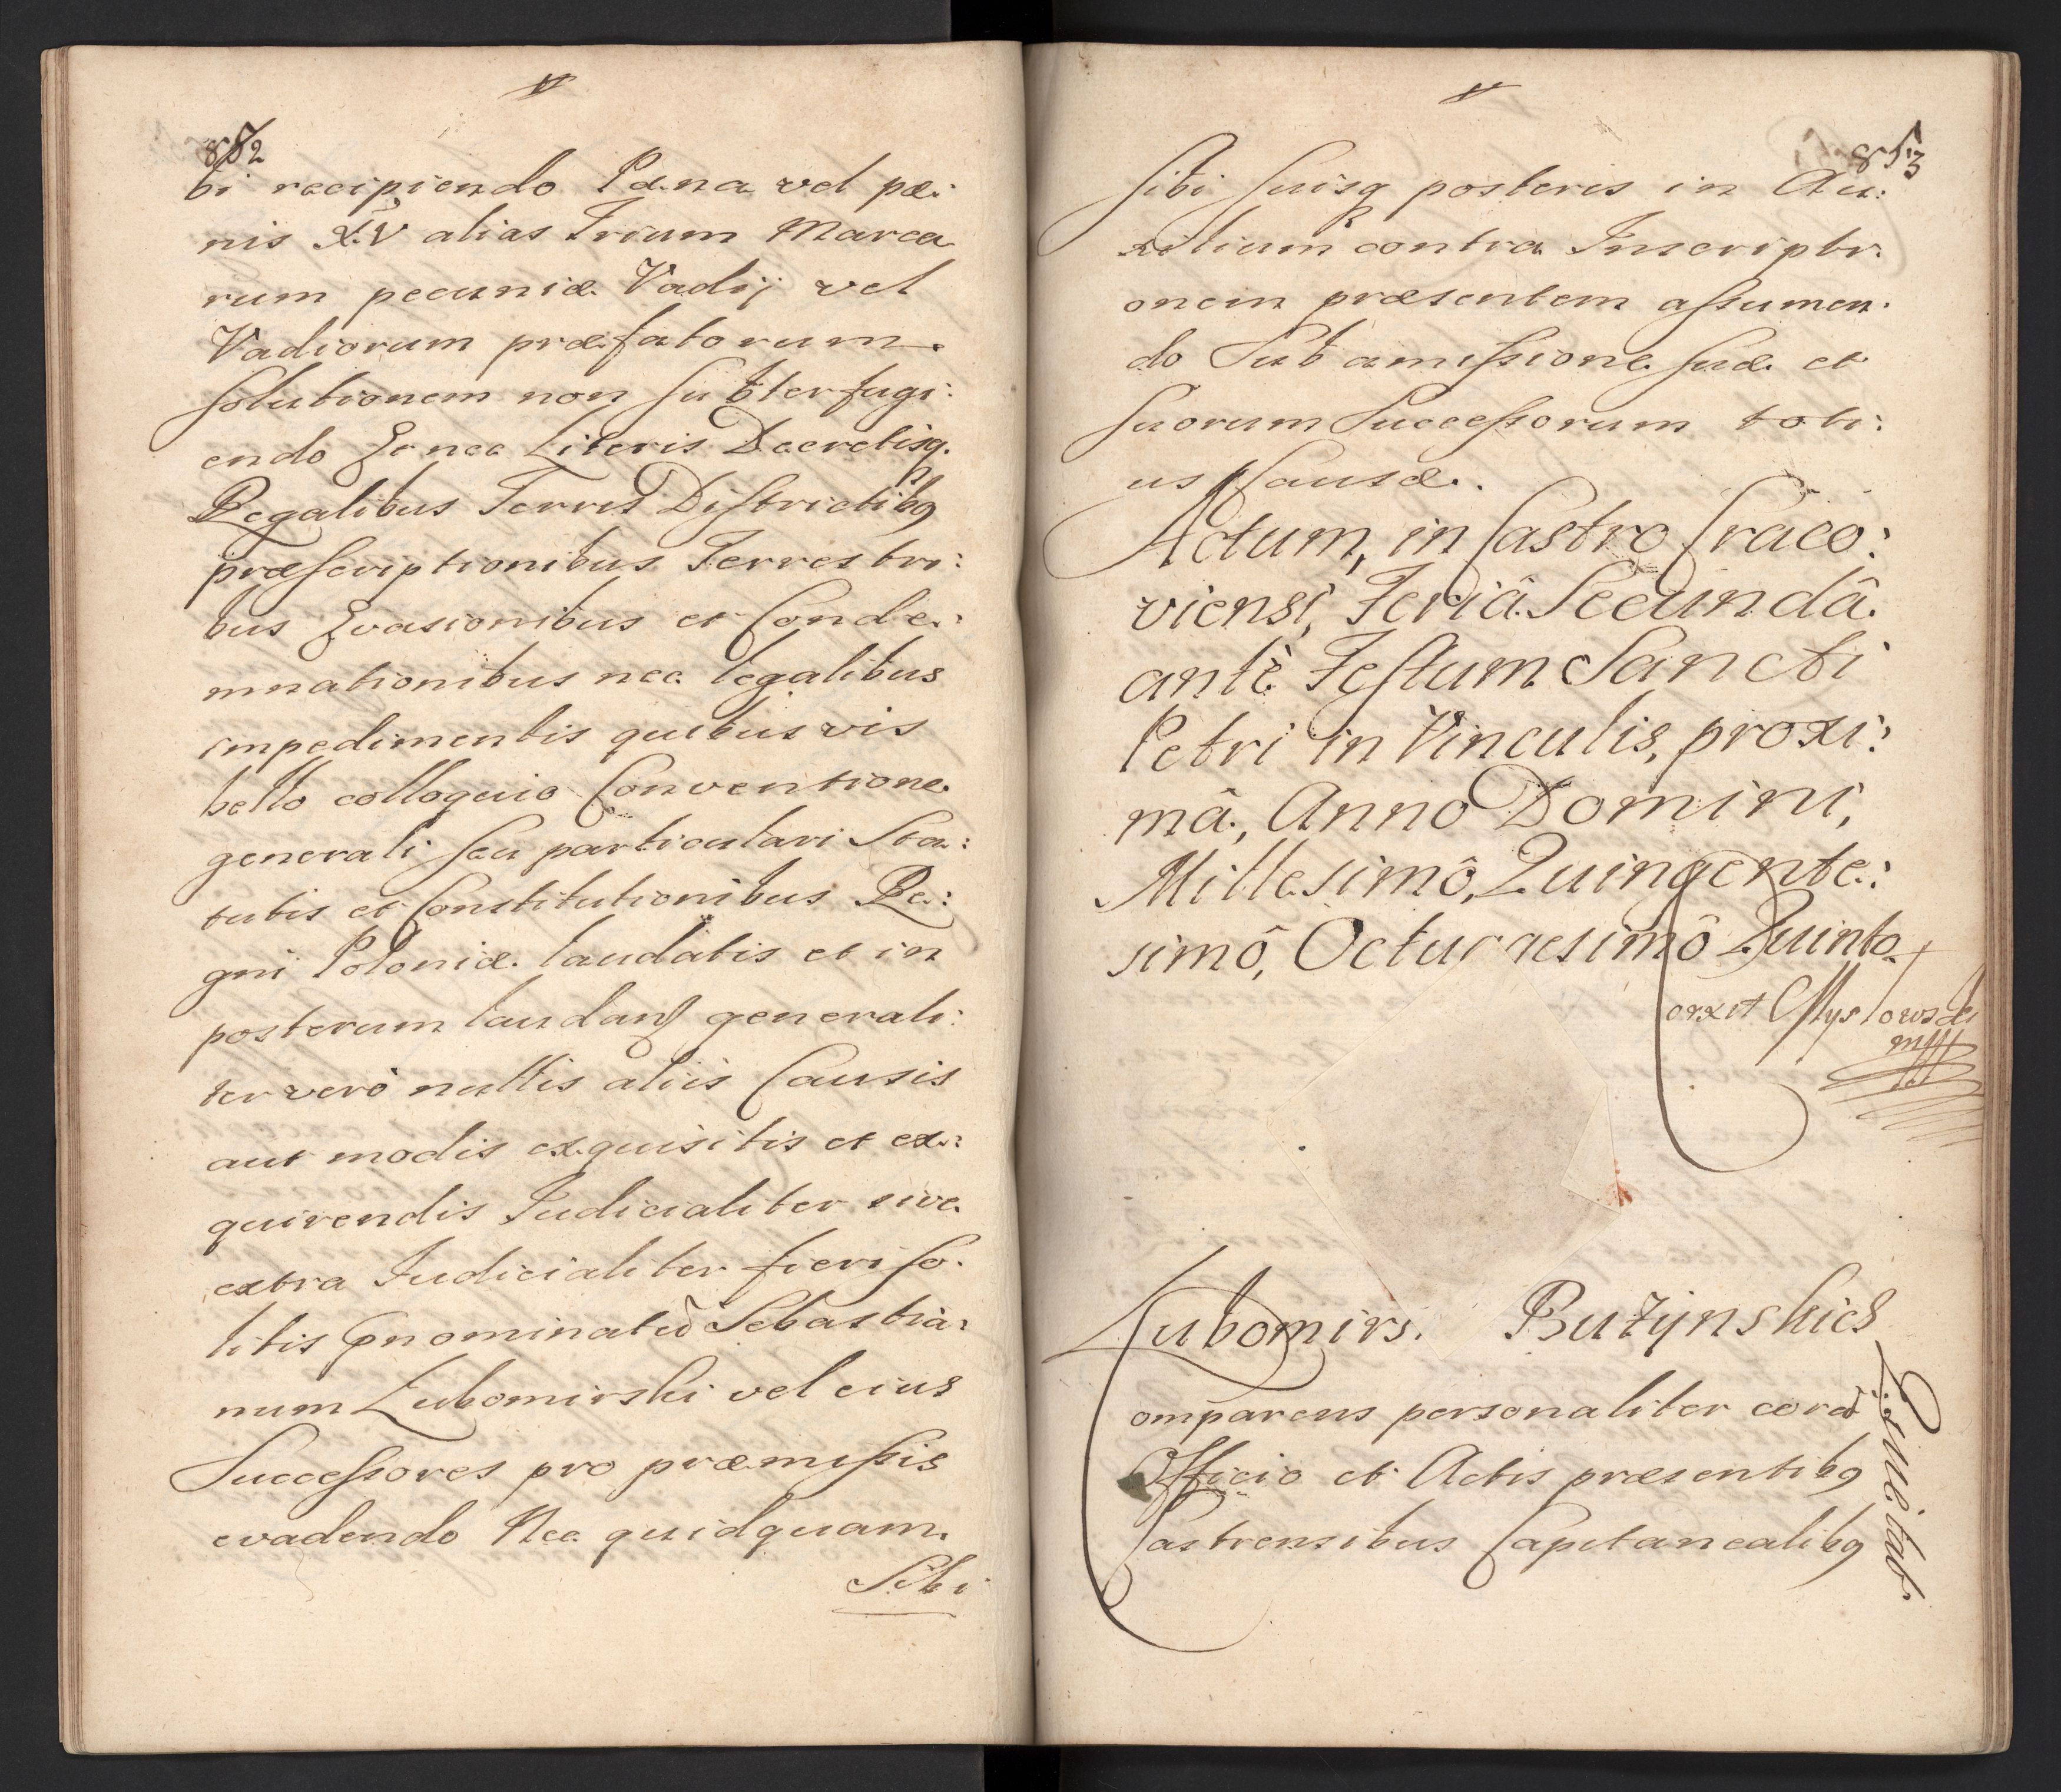 852
bi recipiendo Pæna vel pæ:
nis XV alias Trium Marca
rum pecuniæ Vadij vel
Vadiorum præfatorum
solutionem non subterfugi:
endo Et nec Literis Decretisq.
Regalibus Terris Districtibq
præscriptionibus Terrestri:
bus Evasionibus et Conde:
mnationibus nec legalibus
impedimentis quibusvis
bello colloquio Conventione
generali seu particulari Sta:
tutis et Constitutionibus Re:
gni Poloniæ laudatis et in
posterum laudan generali:
ter verò nullis aliis Causis
aut modis exquisitis et ex:
quirendis Judicialiter sive
extra Judicialiter fieri so:
litis nominatũ Sebastia:
num Lubomirski vel eius
Successores pro præmissis
evadendo Nec quidquam
Sibi
853
sibi suisq posteris in Au:
xilium contra Inscripti:
onem præsentem assumen:
do Sub amissione suæ et
suorum Successorum toti:
us Causæ.
Actum, in Castro Craco:
viensi, Feriâ Secundâ
antè Festum Sancti
Petri in Vinculis, proxi:
mâ, Annô Domini,
Millesimô, Quingente:
simô, Octuagesimô Quinto
Mysłowski
mpp
Lubomirs. Bużynskies
Comparens personaliter corã
Officio et Actis præsentibq
Castrensibus Capitanealibq